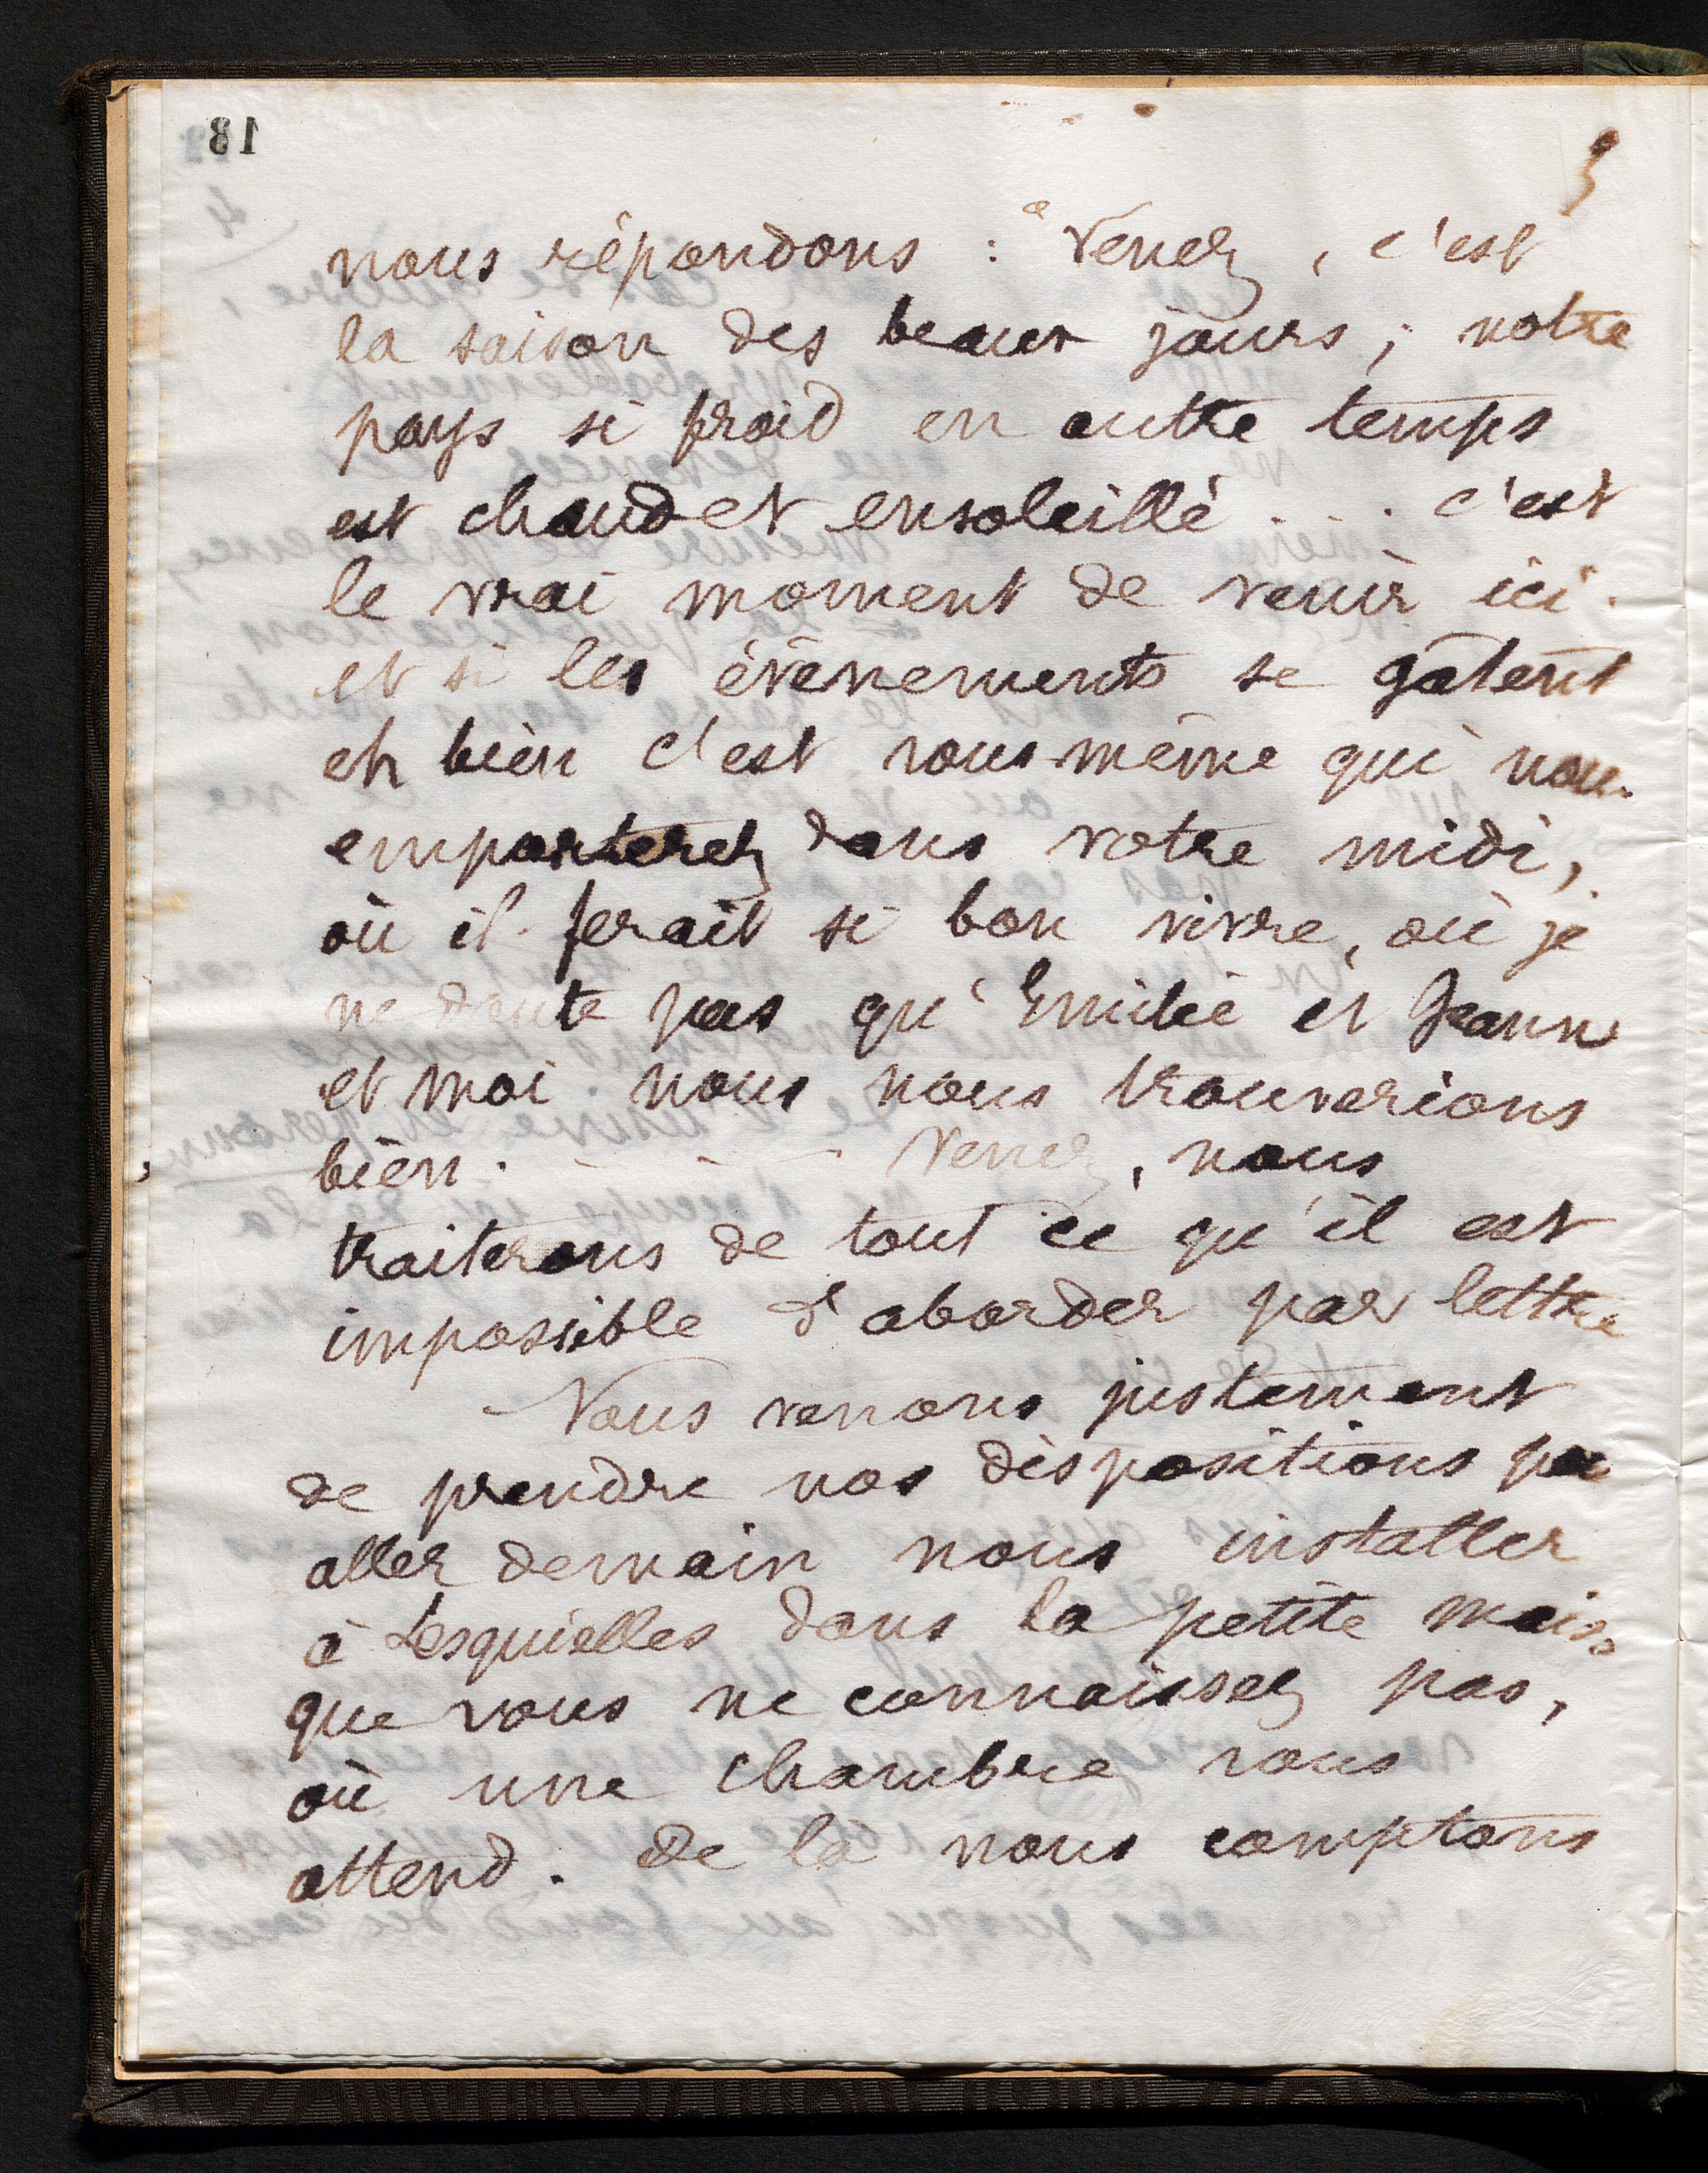 3
nous répondons : "Venez, c'est
la saison des beaux jours; notre
pays si froid en autre temps
est chaud et ensoleillé . . . c'est
le vrai moment de venir ici.
et si les évènements se gâtent
eh bien c'est vous-même qui nous
emporterez dans votre midi,
où il ferait si bon vivre, où je
ne doute pas qu'Emilie et Jeanne
et moi nous nous trouverions
bien. - - - Venez, nous
traiterons de tout ce qu'il est
impossible d'aborder par lettre
Nous venons justement
de prendre nos dispositions pour
aller demain nous installer
à Lesquielles dans la petite maison
que vous ne connaissez pas,
où une chambre vous
attend. De là nous comptons